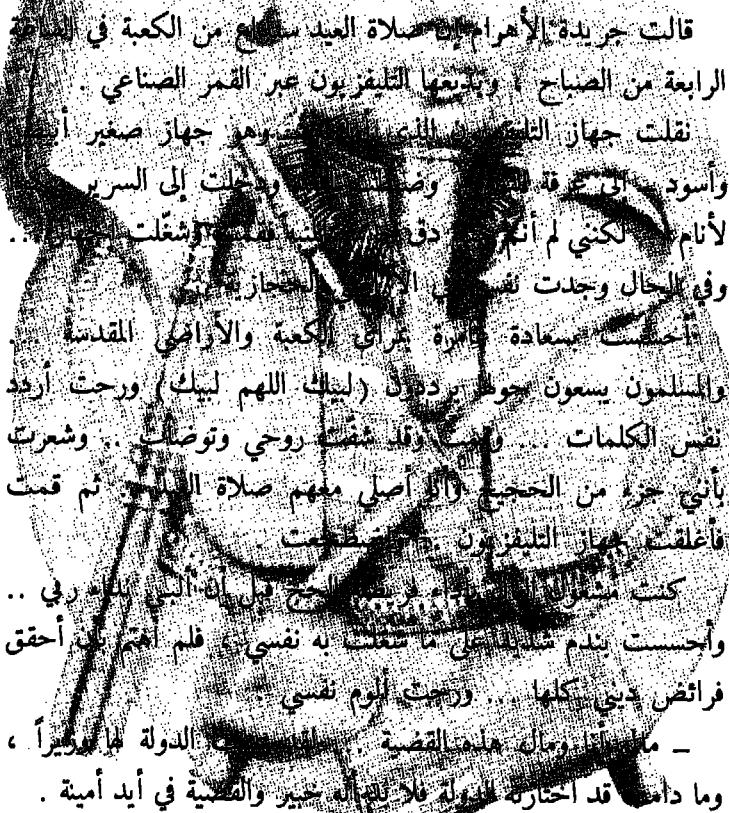 قالت جريدة الأهرام إن صلاة العيد ستذاع من الكعبة في الساعة
الرابعة من الصباح ، ويذيعها التليفزيون عبر القمر الصناعي .
نقلت جهاز التليفزيون الذي وهو جهاز صغير أبيض
وأسود .. الى غرفة ودخلت إلى السرير
لأنام لكنني لم أنم دق وشغّلت الجهاز ..
وفي الحال وجدت نفسي في الأراضي الحجازية
أحسست بسعادة غامرة بمرأى الكعبة والأراضي المقدسة ...
والمسلمون يسعون حولها يرددون (لبيك اللهم لبيك) ورحت أردد
نفس الكلمات ... وقمت وقد شفّت روحي وتوضأت .. وشعرت
بأنني جزء من الحجيج وأنا أصلي معهم صلاة العيد .. ثم قمت
فأغلقت جهاز التليفزيون .. واضطجعت .
كنت مشغول بأداء فريضة الحج قبل أن ألبي نداء ربي ..
وأحسست بندم شديد على ما شغلت به نفسي ، فلم أهتم بأن أحقق
فرائض ديني كلها ... ورحت ألوم نفسي
ـ مالي أنا ومال هذه القضية .. الدولة لها وزيراً ،
وما دامت قد اختارته الدولة فلا بد أنه خبير والقضية في أيد أمينة .